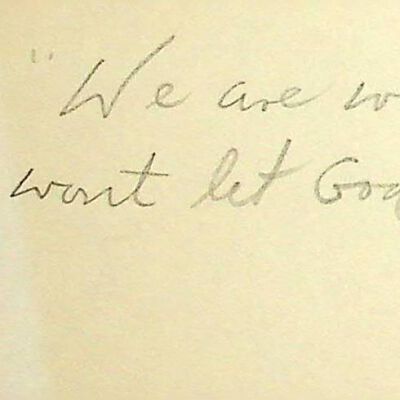 "We are w
wont let God